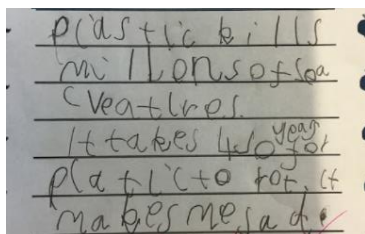 Plastic kills
millons of sea
Cveatires.
It takes 450 years for
Platic to rot. it
makes me sad.